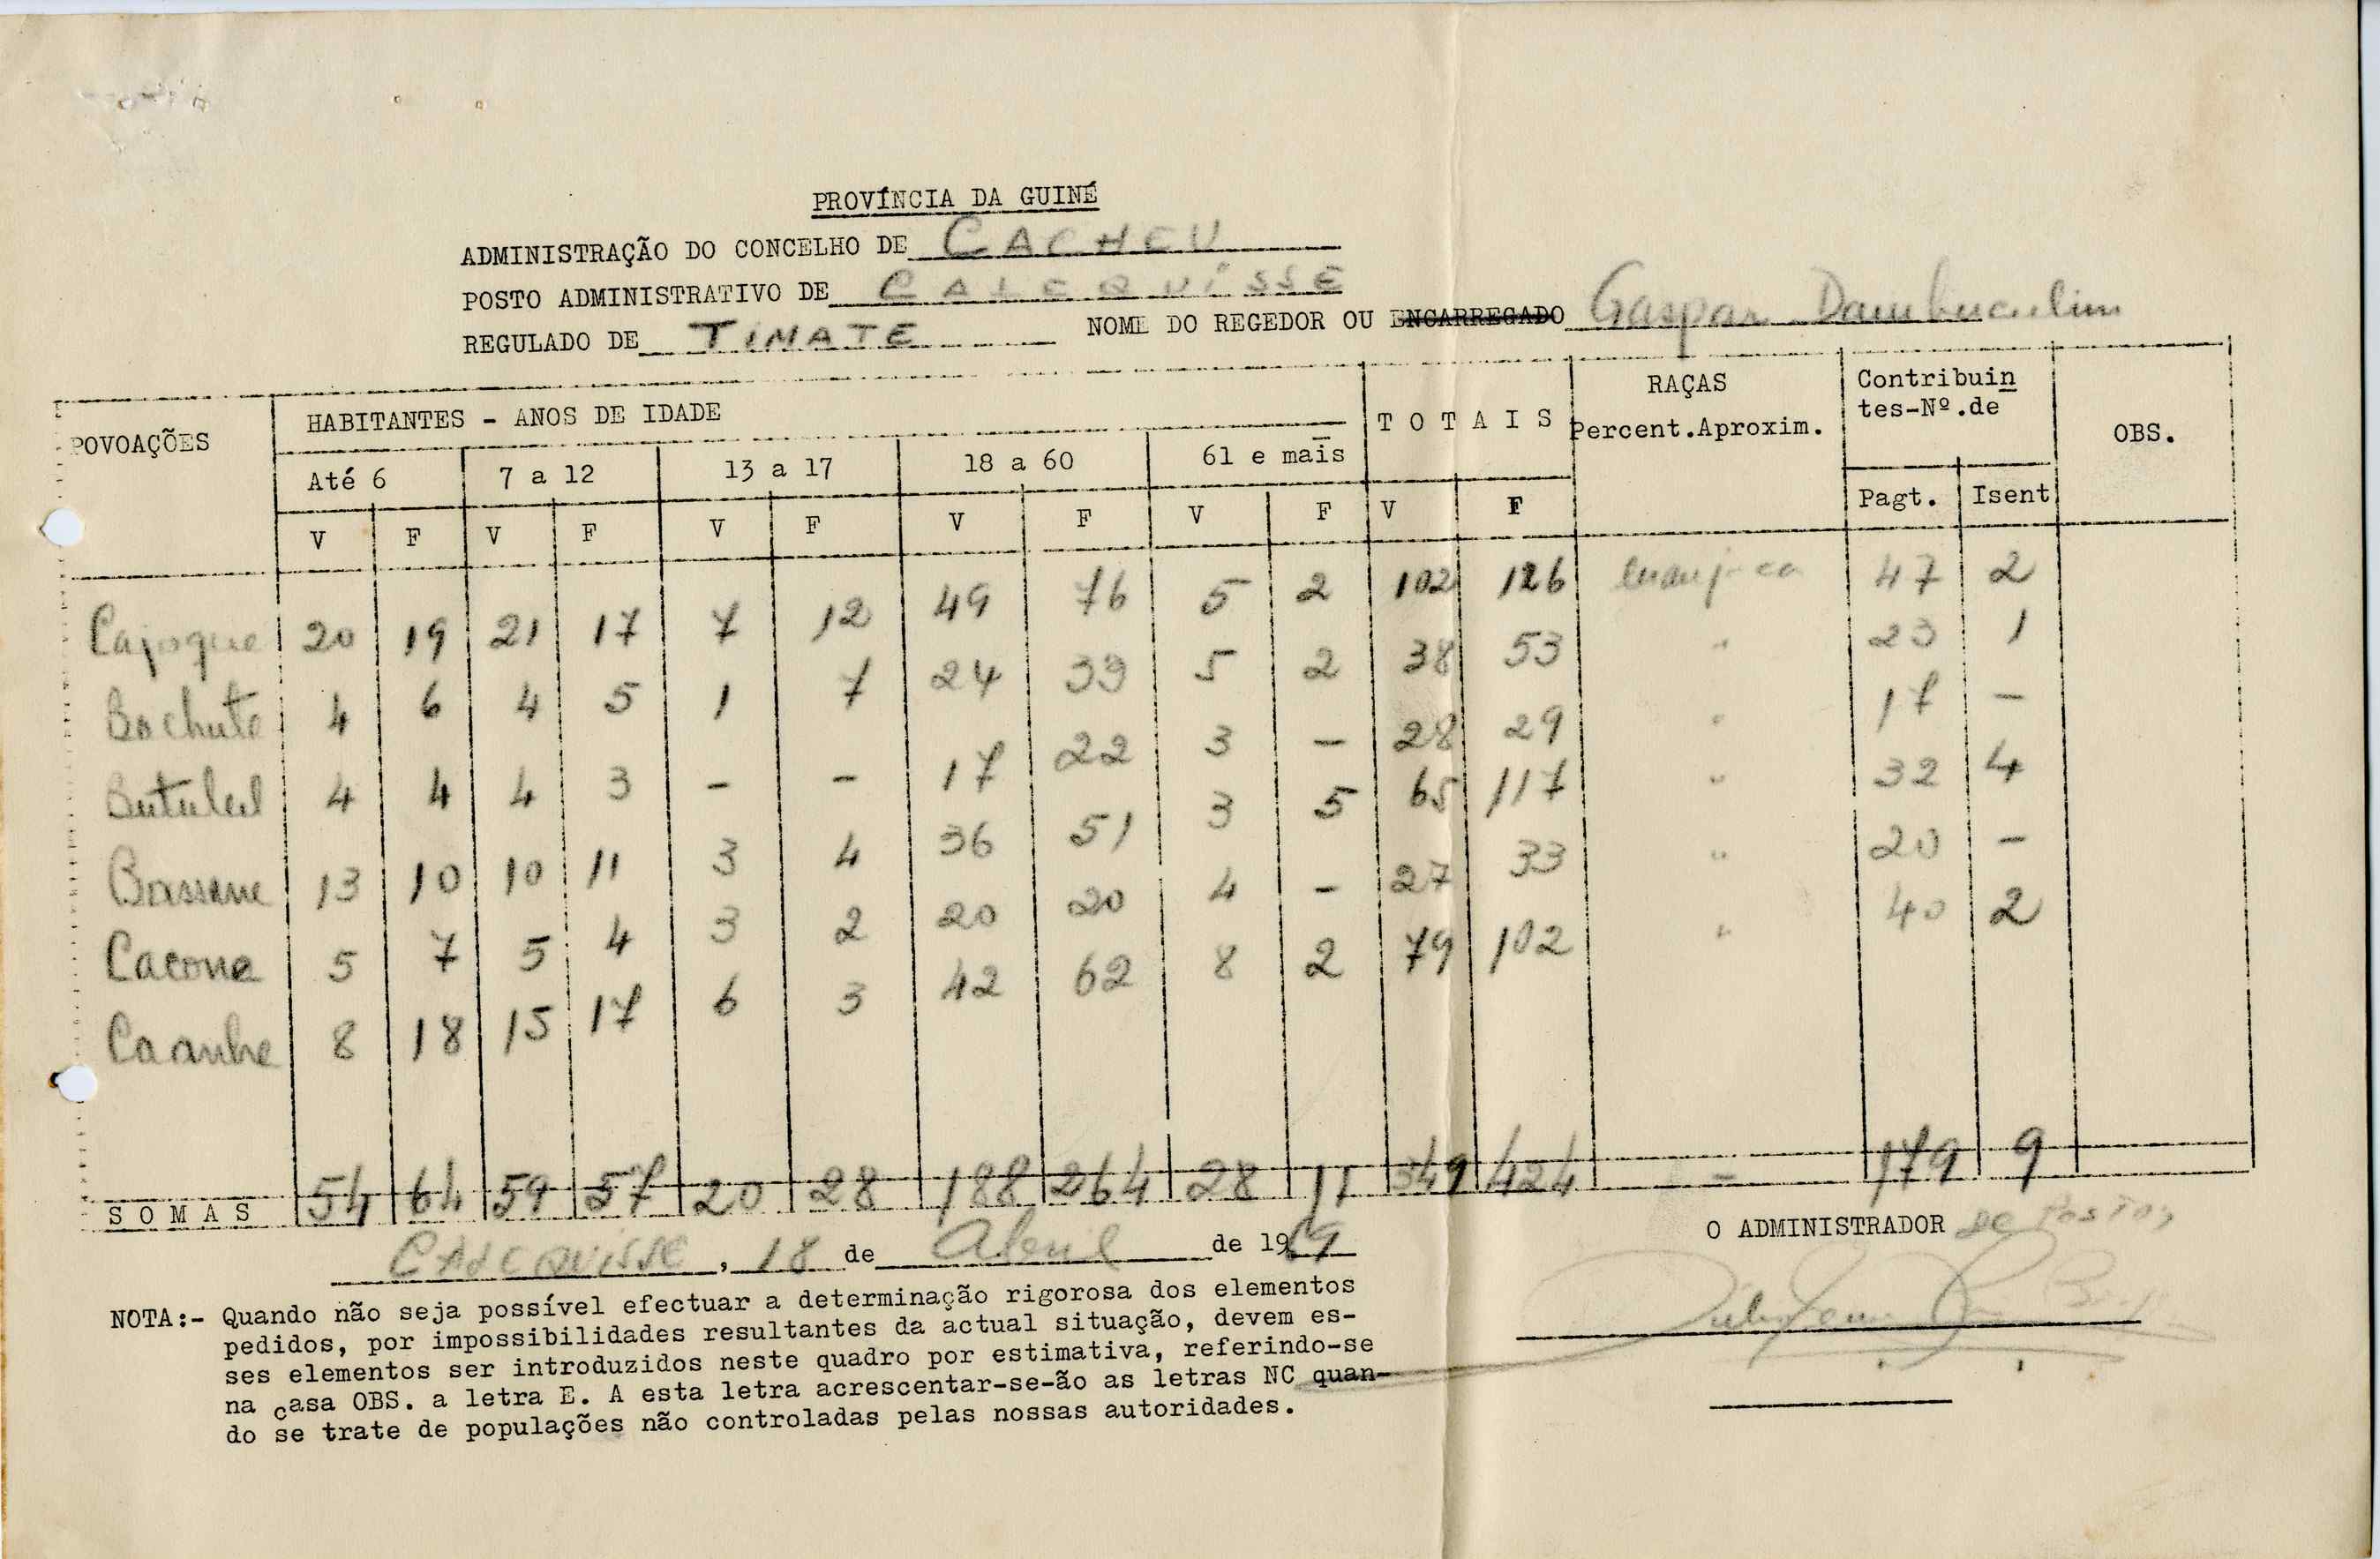 PROVÍNCIA DA GUINÉ
ADMINISTRAÇÃO DO CONCELHO DE CACHEU
POSTO ADMINISTRATIVO DE CALEQUISSE
REGULADO DE TIMATE NOME DO REGEDOR OU ENCARREGADO Gaspar
POVOAÇÕES HABITANTES - ANOS DE IDADE T O T A I S RAÇAS Percent.Aproxim. Contribuin tes-Nº.de OBS.
Até 6 7 a 12 13 a 17 18 a 60 61 e mais Pagt. Isent
V F V F V F V F V F V F
Cajoque 20 19 21 17 7 12 49 76 5 2 102 126 manjaca 47 2
Bochute 4 6 4 5 1 7 24 33 5 2 38 53 " 23 1
4 4 4 3 - - 17 22 3 - 28 29 " 17 -
Bassene 13 10 10 11 3 4 36 51 3 5 65 117 " 32 4
Cacone 5 7 5 4 3 2 20 20 4 - 27 33 " 20 -
Caanhe 8 18 15 17 6 3 42 62 8 2 79 102 " 40 2
S O M A S 54 64 59 57 20 28 188 264 28 11 349 424 - 179 9
CALEQUISSE, 18 de Abril de 1969
O ADMINISTRADOR DE POSTO,
NOTA:- Quando não seja possível efectuar a determinação rigorosa dos elementos
pedidos, por impossibilidades resultantes da actual situação, devem es-
ses elementos ser introduzidos neste quadro por estimativa, referindo-se
na casa OBS. a letra E. A esta letra acrescentar-se-ão as letras NC quan-
do se trate de populações não controladas pelas nossas autoridades.